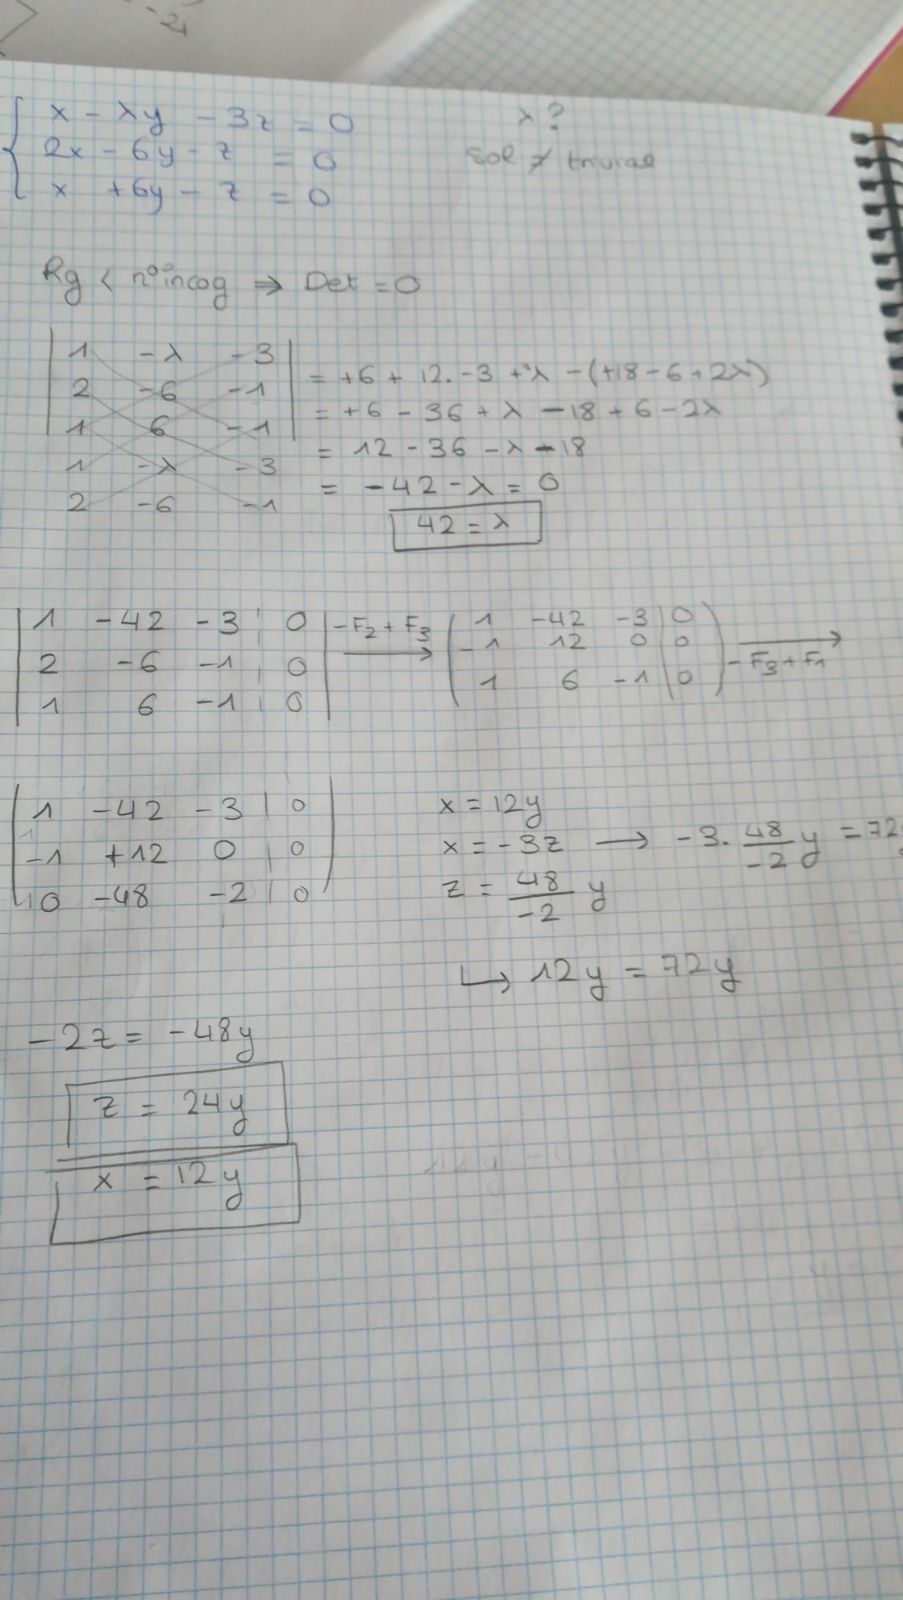 -21
x - λy - 3z = 0
2x - 6y - z = 0
x + 6y - z = 0
λ?
Sol ≠ trivial
Rg < nº incog ⇒ Det = 0
1 -λ -3
2 -6 -1
1 6 -1
1 -λ -3
2 -6 -1
= +6 + 12·-3 + λ - (+18 - 6 + 2λ)
= +6 - 36 + λ - 18 + 6 - 2λ
= 12 - 36 - λ - 18
= -42 - λ = 0
42 = λ
1 -42 -3 | 0
2 -6 -1 | 0
1 6 -1 | 0
-F2 + F3
1 -42 -3 | 0
-1 12 0 | 0
1 6 -1 | 0
-F3 + F1
1 -42 -3 | 0
-1 +12 0 | 0
0 -48 -2 | 0
x = 12y
x = -3z → -3. 48/-2 y = 72y
z = 48/-2 y
↳ 12y = 72y
-2z = -48y
z = 24y
x = 12y